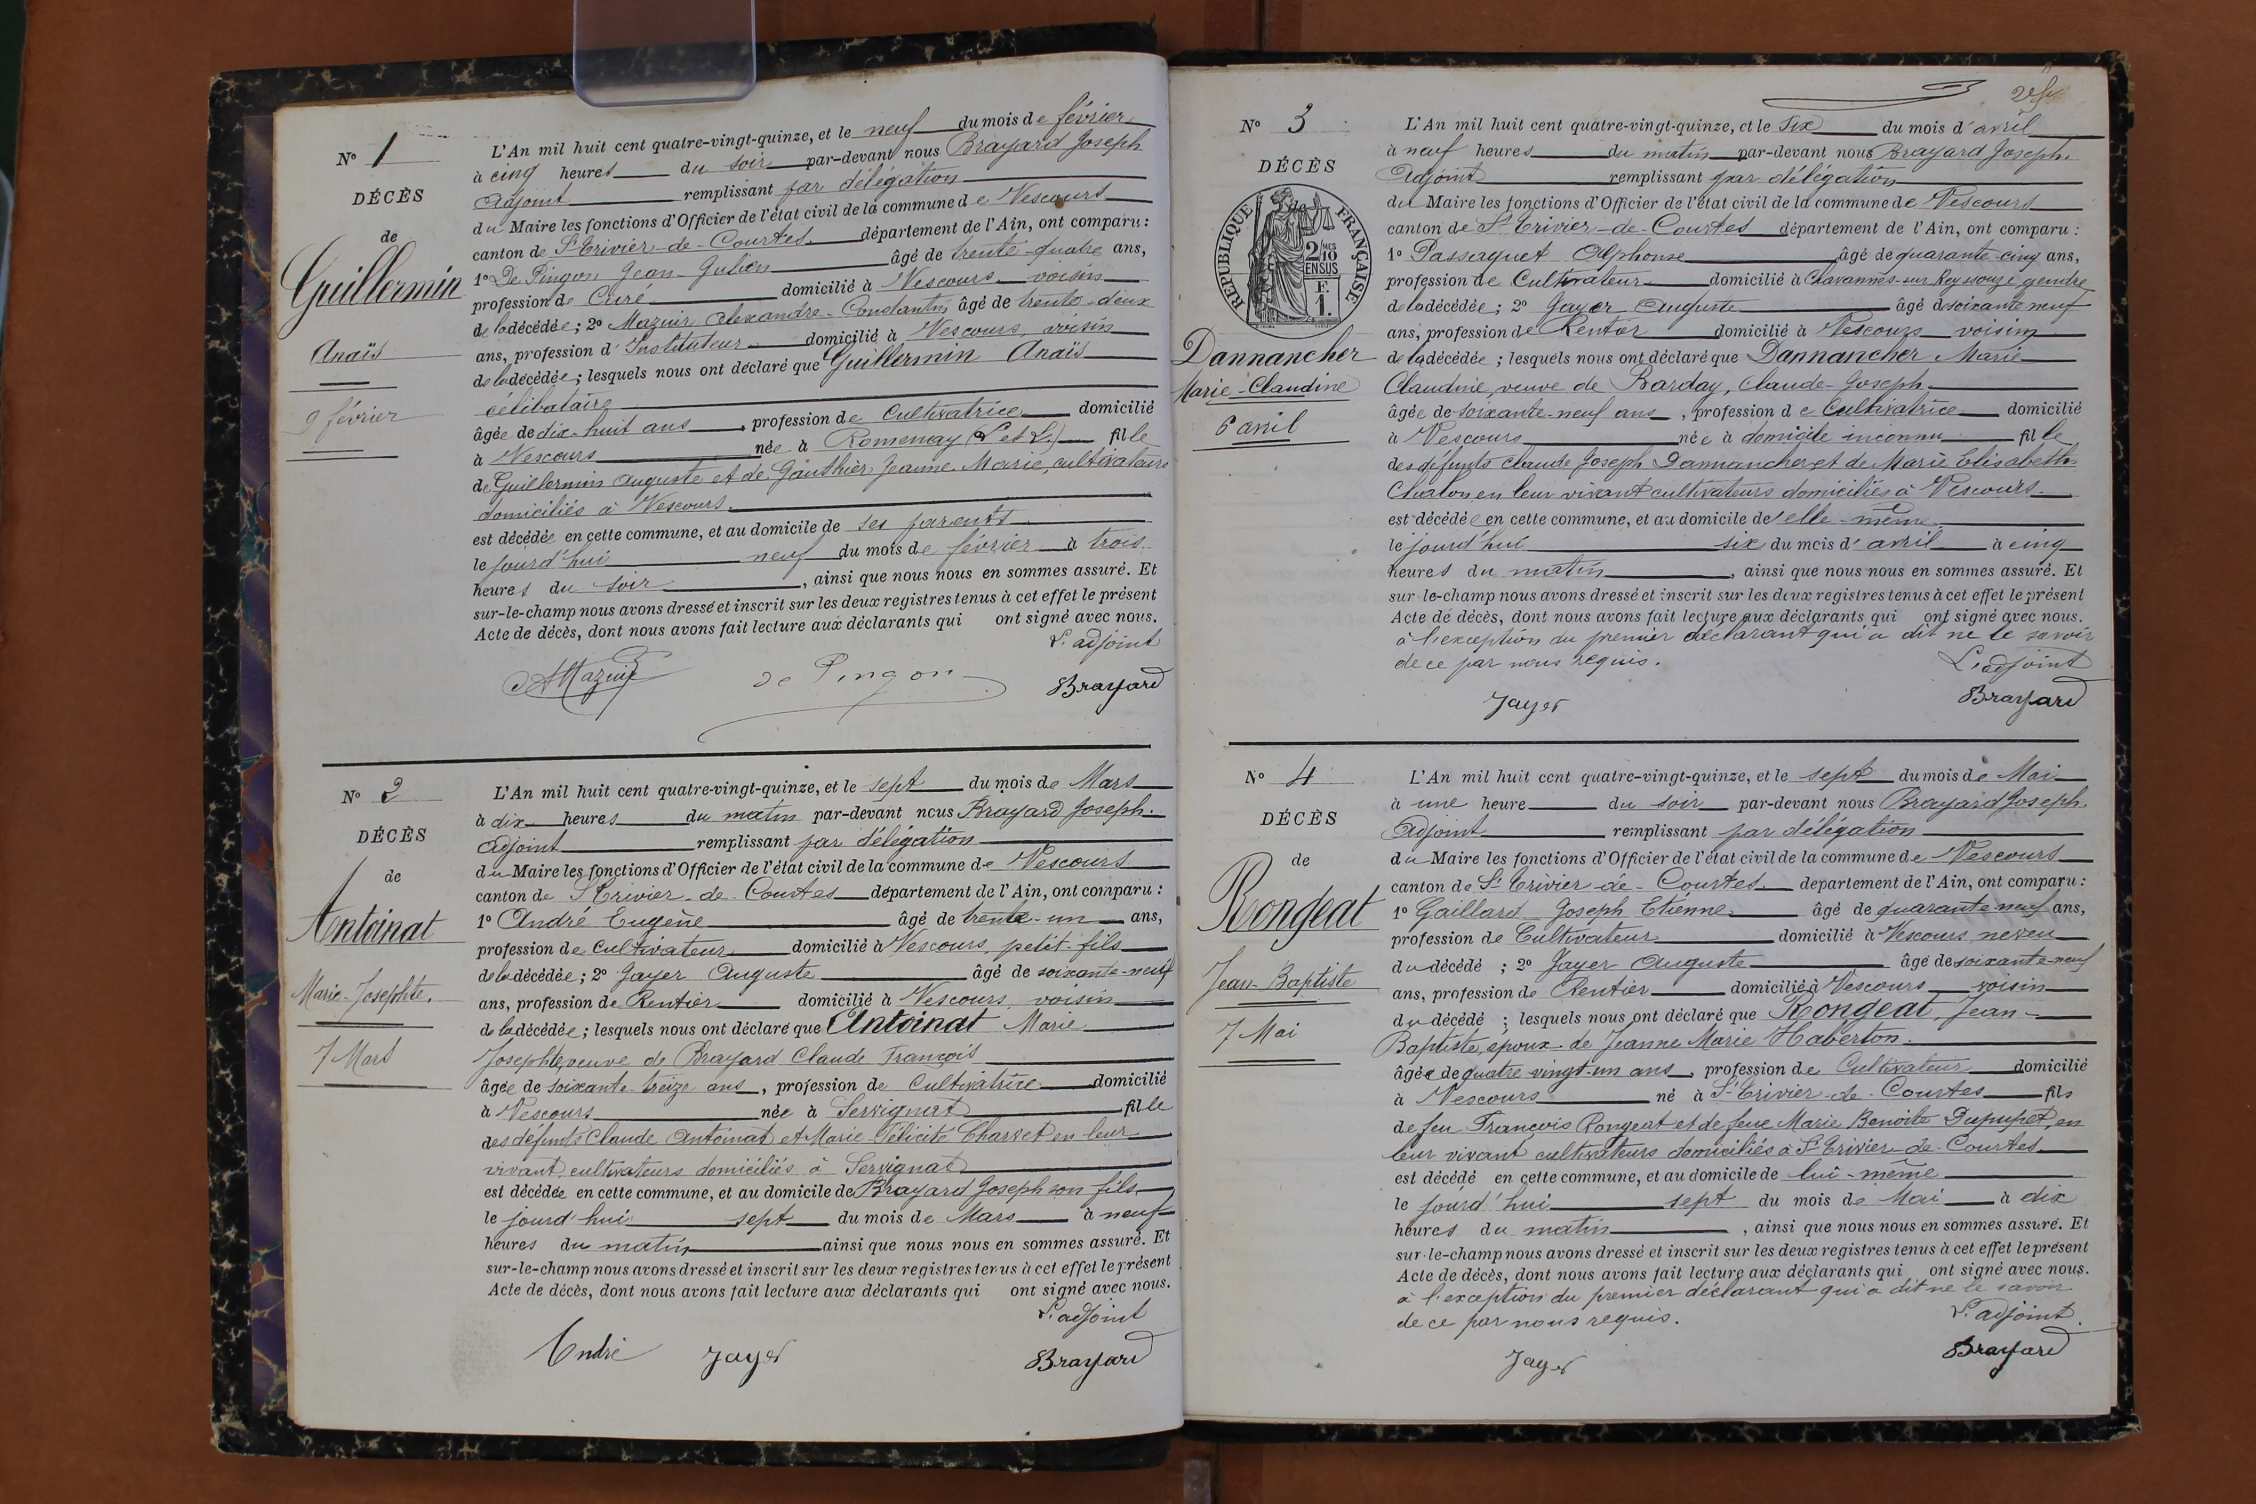 N° 1
DÉCÈS
de
Guillermin
Anaïs
9 février
L'An mil huit cent quatre-vingt-quinze, et le neuf du mois de février
à cinq heures du soir par-devant nous Brayard Joseph
Adjoint remplissant par délégation
du Maire les fonctions d'Officier de l'état civil de la commune de Vescours
canton de St Trivier-de-Courtes département de l'Ain, ont comparu :
1° De Pingon Jean-Julien âgé de trente-quatre ans,
profession de Curé domicilié à Vescours voisin
de la décédée ; 2° Mazuir Alexandre-Constantin âgé de trente-deux
ans, profession d'Instituteur domicilié à Vescours, voisin
de la décédée ; lesquels nous ont déclaré que Guillermin Anaïs
célibataire
âgée de dix-huit ans, profession de Cultivatrice domicilié
à Vescours née à Romenay (S. et L.) fille
de Guillermin Auguste et de Gauthier Jeanne Marie, cultivateurs
domiciliés à Vescours.
est décédée en cette commune, et au domicile de ses parents
le jourd'hui neuf du mois de février à trois
heures du soir, ainsi que nous nous en sommes assuré. Et
sur-le-champ nous avons dressé et inscrit sur les deux registres tenus à cet effet le présent
Acte de décès, dont nous avons fait lecture aux déclarants qui ont signé avec nous.
L'adjoint
AMazuir de Pingon Brayard
N° 2
DÉCÈS
de
Antoinat
Marie-Josephte.
7 Mars
L'An mil huit cent quatre-vingt-quinze, et le sept du mois de Mars
à dix heures du matin par-devant nous Brayard Joseph.
Adjoint remplissant par délégation
du Maire les fonctions d'Officier de l'état civil de la commune de Vescours
canton de St Trivier-de-Courtes département de l'Ain, ont comparu :
1° André Eugène âgé de trente-un ans,
profession de Cultivateur domicilié à Vescours, petit-fils
de la décédée ; 2° Jayer Auguste âgé de soixante-neuf
ans, profession de Rentier domicilié à Vescours, voisin
de la décédée ; lesquels nous ont déclaré que Antoinat Marie
Josephte, veuve de Brayard Claude François
âgée de soixante treize ans, profession de Cultivatrice domicilié
à Vescours née à Servignat fille
des défunts Claude Antoinat et Marie-Félicité Charvet en leur
vivant cultivateurs domiciliés à Servignat
est décédée en cette commune, et au domicile de Brayard Joseph son fils
le jourd'hui sept du mois de Mars à neuf
heures du matin ainsi que nous nous en sommes assuré. Et
sur-le-champ nous avons dressé et inscrit sur les deux registres tenus à cet effet le présent
Acte de décès, dont nous avons fait lecture aux déclarants qui ont signé avec nous.
L'adjoint
André Jayer Brayard
N° 3
DÉCÈS
RÉPUBLIQUE FRANÇAISE
2/10
EN SUS
F.
1.
Dannancher
Marie-Claudine
6 avril
L'An mil huit cent quatre-vingt-quinze, et le Six du mois d'avril
à neuf heures du matin par-devant nous Brayard Joseph
Adjoint remplissant par délégation
du Maire les fonctions d'Officier de l'état civil de la commune de Vescours
canton de St Trivier-de-Courtes département de l'Ain, ont comparu :
1° Passaquet Alphonse âgé de quarante-cinq ans,
profession de Cultivateur domicilié à Chavannes-sur-Reyssouze gendre
de la décédée ; 2° Jayer Auguste âgé de soixante neuf
ans, profession de Rentier domicilié à Vescours voisin
de la décédée ; lesquels nous ont déclaré que Dannancher Marie
Claudine, veuve de Barday, Claude-Joseph
âgée de soixante-neuf ans, profession de Cultivatrice domicilié
à Vescours née à domicile inconnu fille
des défunts Claude Joseph Dannancher et de Marie Elisabeth
Chalon, en leur vivant cultivateurs domiciliés à Vescours.
est décédée en cette commune, et au domicile d'elle-même
le jourd'hui six du mois d'avril à cinq
heures du matin, ainsi que nous nous en sommes assuré. Et
sur-le-champ nous avons dressé et inscrit sur les deux registres tenus à cet effet le présent
Acte de décès, dont nous avons fait lecture aux déclarants qui ont signé avec nous.
à l'exception du premier déclarant qui a dit ne le savoir
de ce par nous requis.
L'adjoint
Jayer Brayard
N° 4
DÉCÈS
de
Rongeat
Jean-Baptiste
7 Mai
L'An mil huit cent quatre-vingt-quinze, et le sept du mois de Mai
à une heure du soir par-devant nous Brayard Joseph
Adjoint remplissant par délégation
du Maire les fonctions d'Officier de l'état civil de la commune de Vescours
canton de St Trivier-de-Courtes département de l'Ain, ont comparu :
1° Gaillard Joseph Etienne âgé de quarante neuf ans,
profession de Cultivateur domicilié à Vescours neveu
du décédé ; 2° Jayer Auguste âgé de soixante-neuf
ans, profession de Rentier domicilié à Vescours voisin
du décédé ; lesquels nous ont déclaré que Rongeat, Jean-
Baptiste, époux de Jeanne Marie Haberton.
âgée de quatre vingt-un ans, profession de Cultivateur domicilié
à Vescours né à St Trivier-de-Courtes fils
de feu François Rongeat et de feue Marie Benoite Dupupet, en
leur vivant cultivateurs domiciliés à St Trivier-de-Courtes
est décédé en cette commune, et au domicile de lui-même
le jourd'hui sept du mois de Mai à dix
heures du matin, ainsi que nous nous en sommes assuré. Et
sur-le-champ nous avons dressé et inscrit sur les deux registres tenus à cet effet le présent
Acte de décès, dont nous avons fait lecture aux déclarants qui ont signé avec nous.
à l'exception du premier déclarant qui a dit ne le savoir
de ce par nous requis.
L'adjoint.
Jayer Brayard